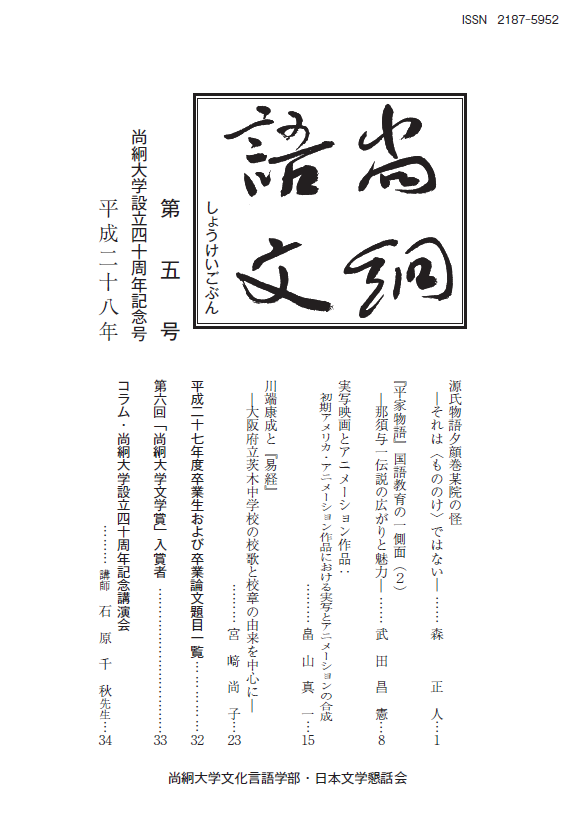 ISSN 2187-5952
尚絅
語文
しょうけいごぶん
第五号
尚絅大学設立四十周年記念号
平成二十八年
源氏物語夕顔巻某院の怪
―それは〈もののけ〉ではない―……森 正人…1
『平家物語』国語教育の一側面(2)
―那須与一伝説の広がりと魅力―……武田昌憲…8
実写映画とアニメーション作品:
初期アメリカ・アニメーション作品における実写とアニメーションの合成
………畠山真一…15
川端康成と『易経』
―大阪府立茨木中学校の校歌と校章の由来を中心に―
………宮﨑尚子…23
平成二十七年度卒業生および卒業論文題目一覧………………32
第六回「尚絅大学文学賞」入賞者………………………………33
コラム・尚絅大学設立四十周年記念講演会
………講師 石原千秋先生…34
尚絅大学文化言語学部・日本文学懇話会